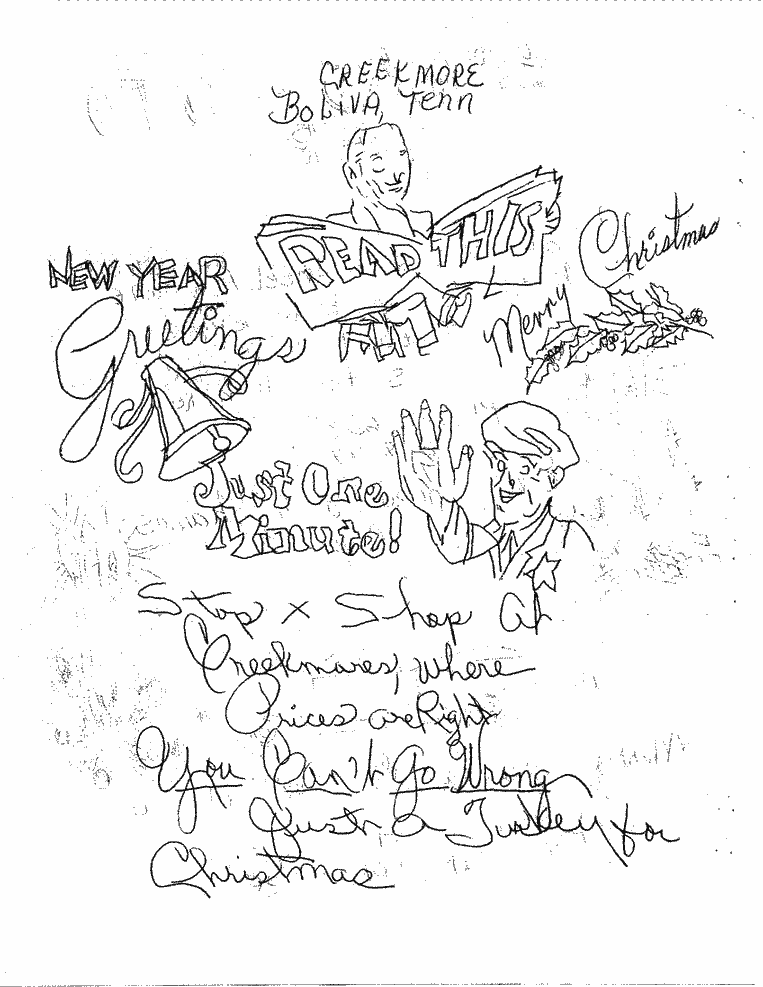 CREEKMORE
BOLIVA, Tenn
READ THIS
NEW YEAR
Greetings
Merry Christmas
Just One
Minute!
Stop x Shop At
Creekmores, where
Prices are Right
You Can't Go Wrong
Just, a Turkey for
Christmas